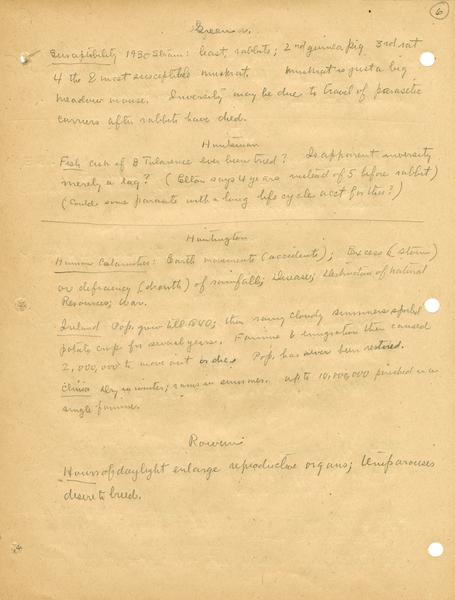 6
Green
Susceptibility 1930 Strain: least, rabbits; 2nd guinea pig 3rd rat
4th & most susceptible muskrat. Muskrat is just a big
meadow mouse. Inversity may be due to travel of parasitic
carriers after rabbits have died.
Huntsman
Fish cult of B Tularense ever been tried? Is apparent inversity
merely a lag? (Elton says 4 years instead of 5 before rabbit)
(Could some parasite with a long life cycle acct for this?)
Huntington
Human Calamities: Earth movements (accidents); Excess (storm)
or deficiency (drouth) of rainfall; Disease; Destruction of natural
Resources; War.
Ireland Pop. grew till 1840; then rainy cloudy summers spoiled
potato crop for several years. Famine & emigration then caused
2,000,000 to move out or die. Pop. has never been restored.
China Dry in winter; rains in summer. Up to 10,000,000 perished in a
single famine.
Rowan
Hours of daylight enlarge reproductive organs; this arouses
desire to breed.